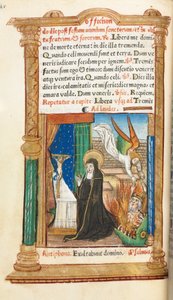 Officium
die post festum omnium sanctorum, et in
Libera me domi
ne de morte eterna: in die illa tremenda.
Quando celi movendi sunt et terra. Dum ve
neris iudicare seculum per ignem. Tremēs
factus sum ego et timeo: dum discussio vener̄
atque ventura ira. Quando celi. Dies illa
dies ire: calamitatis et miserie: dies magna et
amara valde. Dum veneris. Requiem.
Repetatur a capite Libera usque ad Tremēs
Ad laudes.
Antiphona. Exultabunt domino. psalmus.